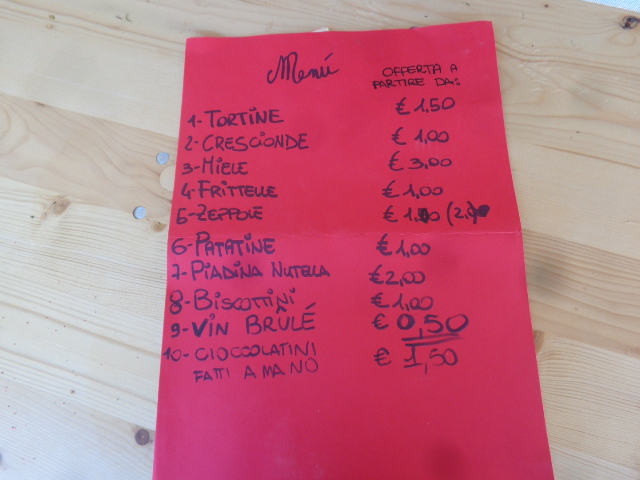 Menú
OFFERTA A
PARTIRE DA:
1-TORTINE € 1,50
2-CRESCIONDE € 1,00
3-MIELE € 3,00
4-FRITTELLE € 1,00
5-ZEPPOLE
6-PATATINE € 1,00
7-PIADINA NUTELLA € 2,00
8-BISCOTTINI € 1,00
9-VIN BRÛLÉ € 0,50
10-CIOCCOLATINI € 1,50
FATTI A MANO